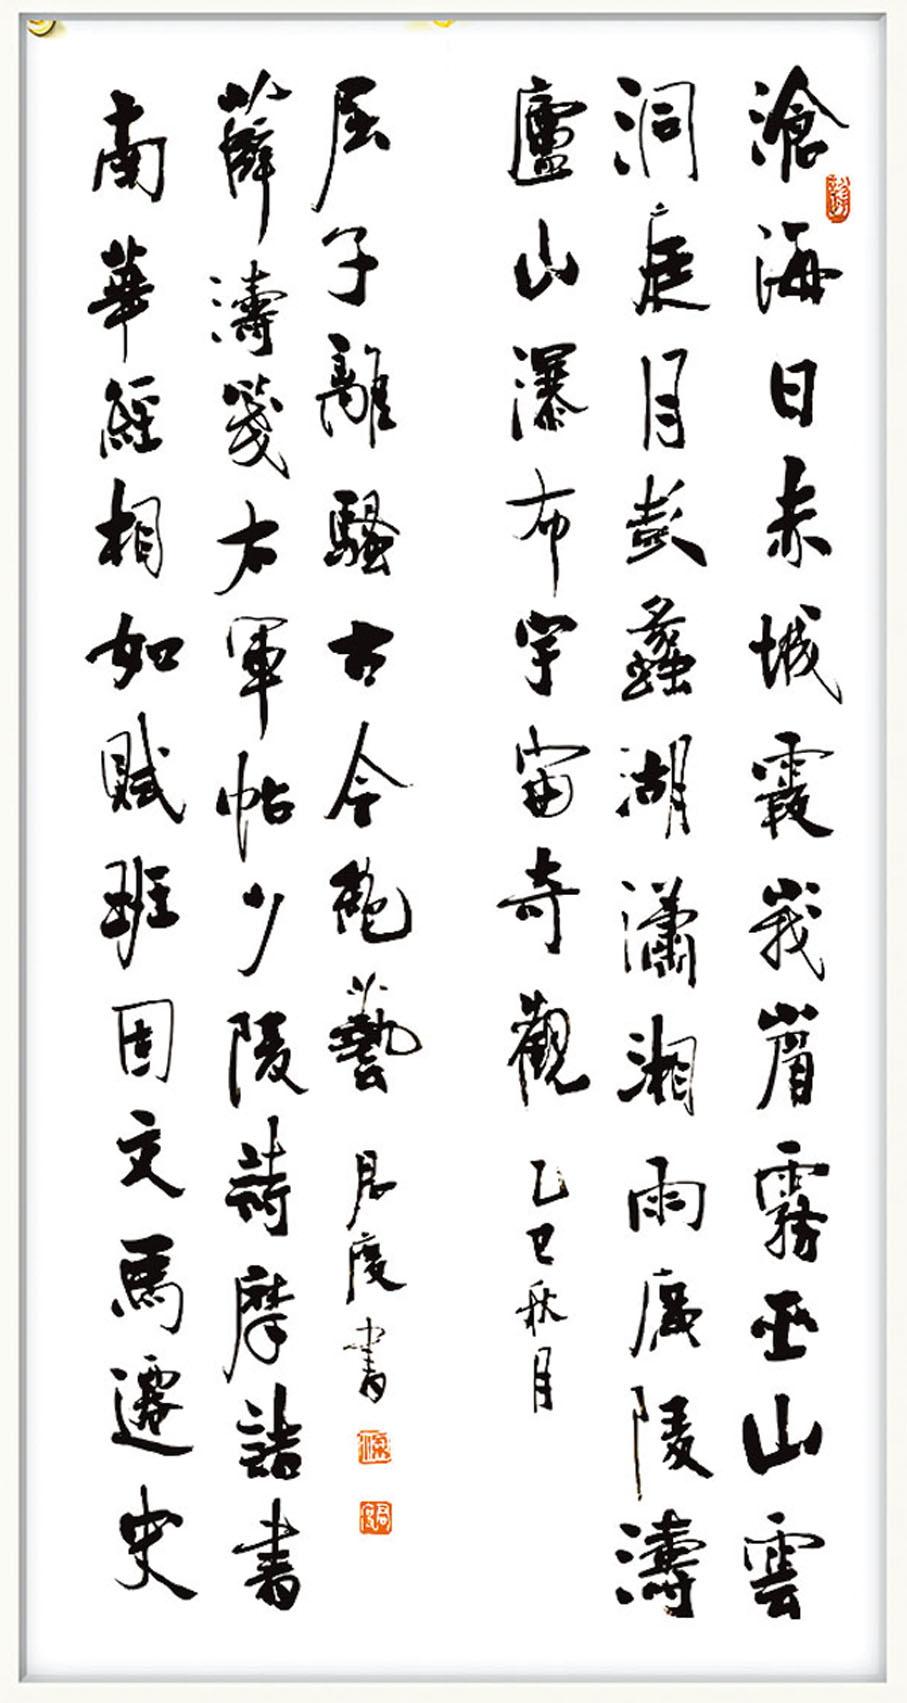 滄海日赤城霞峩嵋霧巫山雲
洞庭月彭蠡湖瀟湘雨廣陵濤
廬山瀑布宇宙奇觀
乙巳秋月
南華經相如賦班固文馬遷史
薛濤箋右軍帖少陵詩摩詰書
屈子離騷古今絕藝
度書